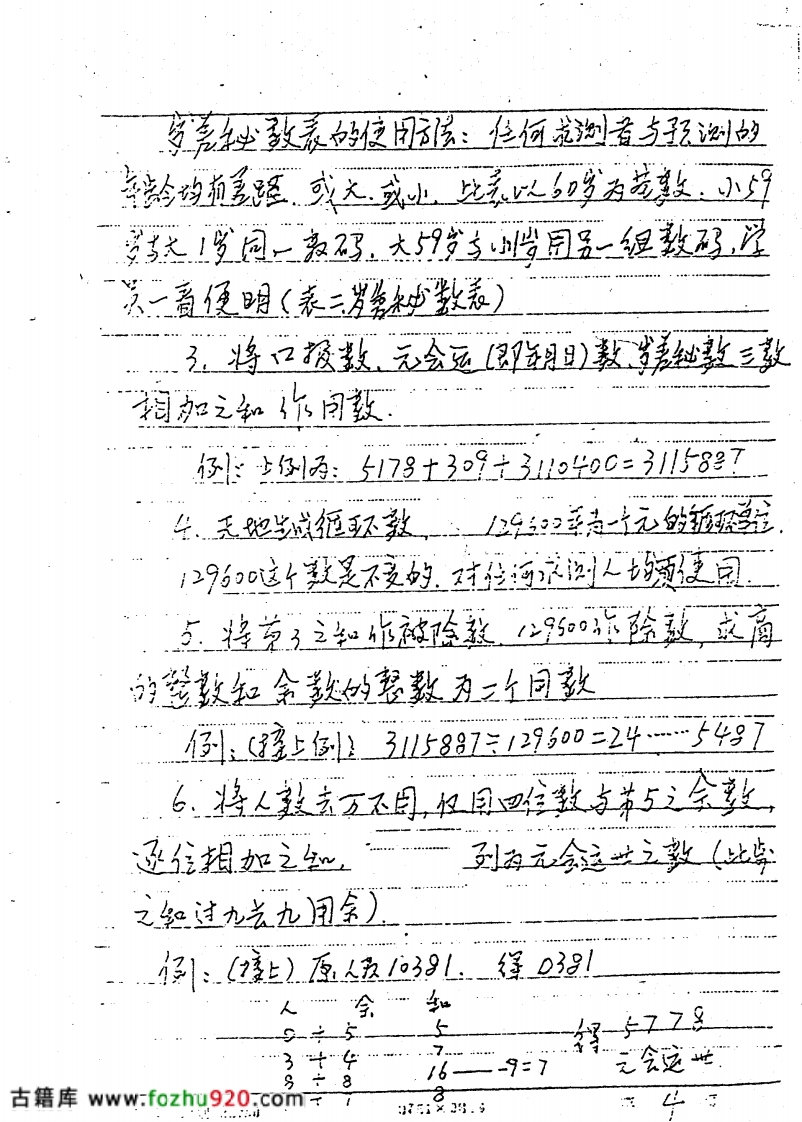 岁差秘数表的使用方法：任何求测者与预测的
年龄均有差距，或大、或小，此表以60岁为基数、小59
岁与大1岁同一数码，大59岁与小1岁用另一组数码，学
员一看便明（表二岁差秘数表）
3、将口报数、元会运（即年月日）数、岁差秘数三数
相加之和作用数.
例：上例为：5178+309+3110400=3115887
4、天地生成循环数， 129600年为一个元的循环单位.
129600这个数是不变的.对任何求测人均须使用.
5、将第3之和作被除数，129600作除数，求商
的整数和余数的整数为二个用数
例：（接上例）3115887÷129600=24……5487
6、将人数去万不用，仅用四位数与第5之余数，
逐位相加之和， 列为元会运世之数（此
之和过九去九用余）.
例：（接上）原人数10381. 得0381
人 余 和
0+5 5 得5778
3+4 7 元会运世
8+8 16——-9=7
1+7 8
4
古籍库 www.fozhu920.com